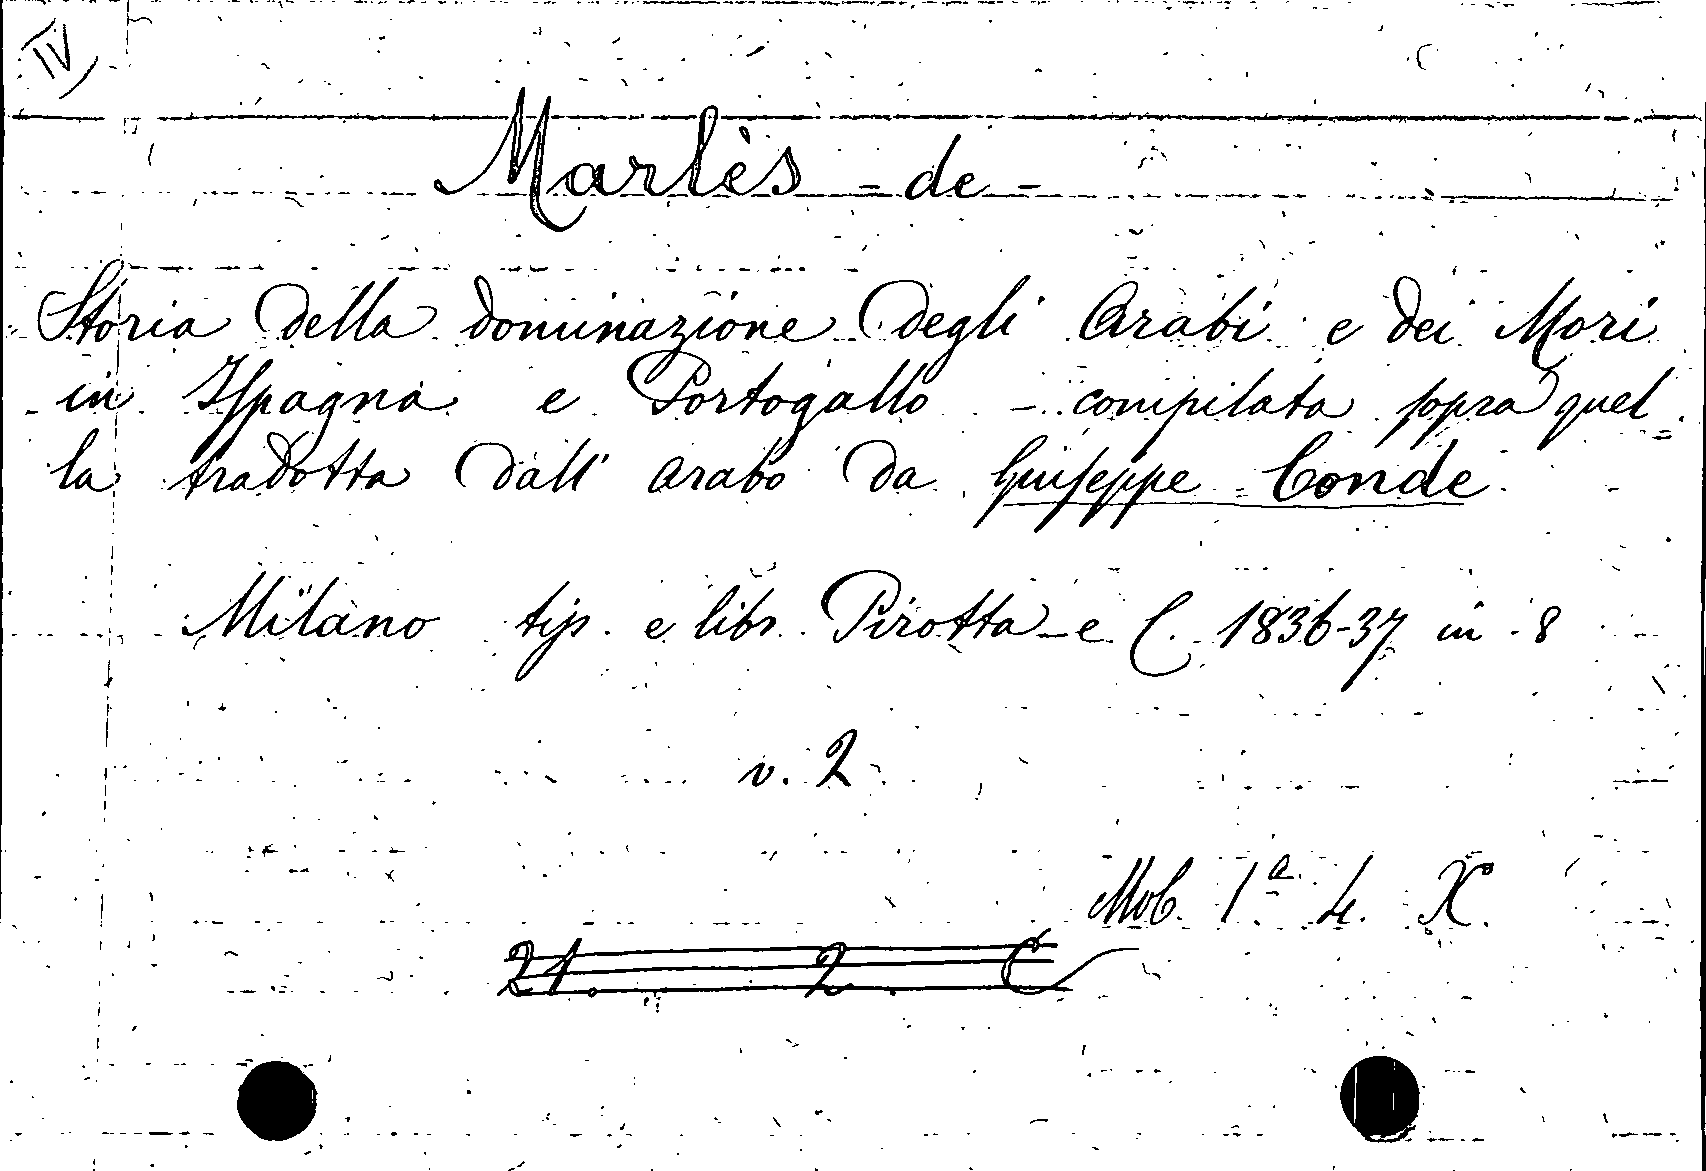 IV
Marlès - de -
Storia della dominazione degli Arabi e dei Mori
in Ispagna e Portogallo - compilata sopra quel
la tradotta dall' arabo da Giuseppe Conde
Milano tip. e libr. Pirotta e C. 1836-37 in 8
v. 2
Mob. 1ª 4. X.
21. 2. C